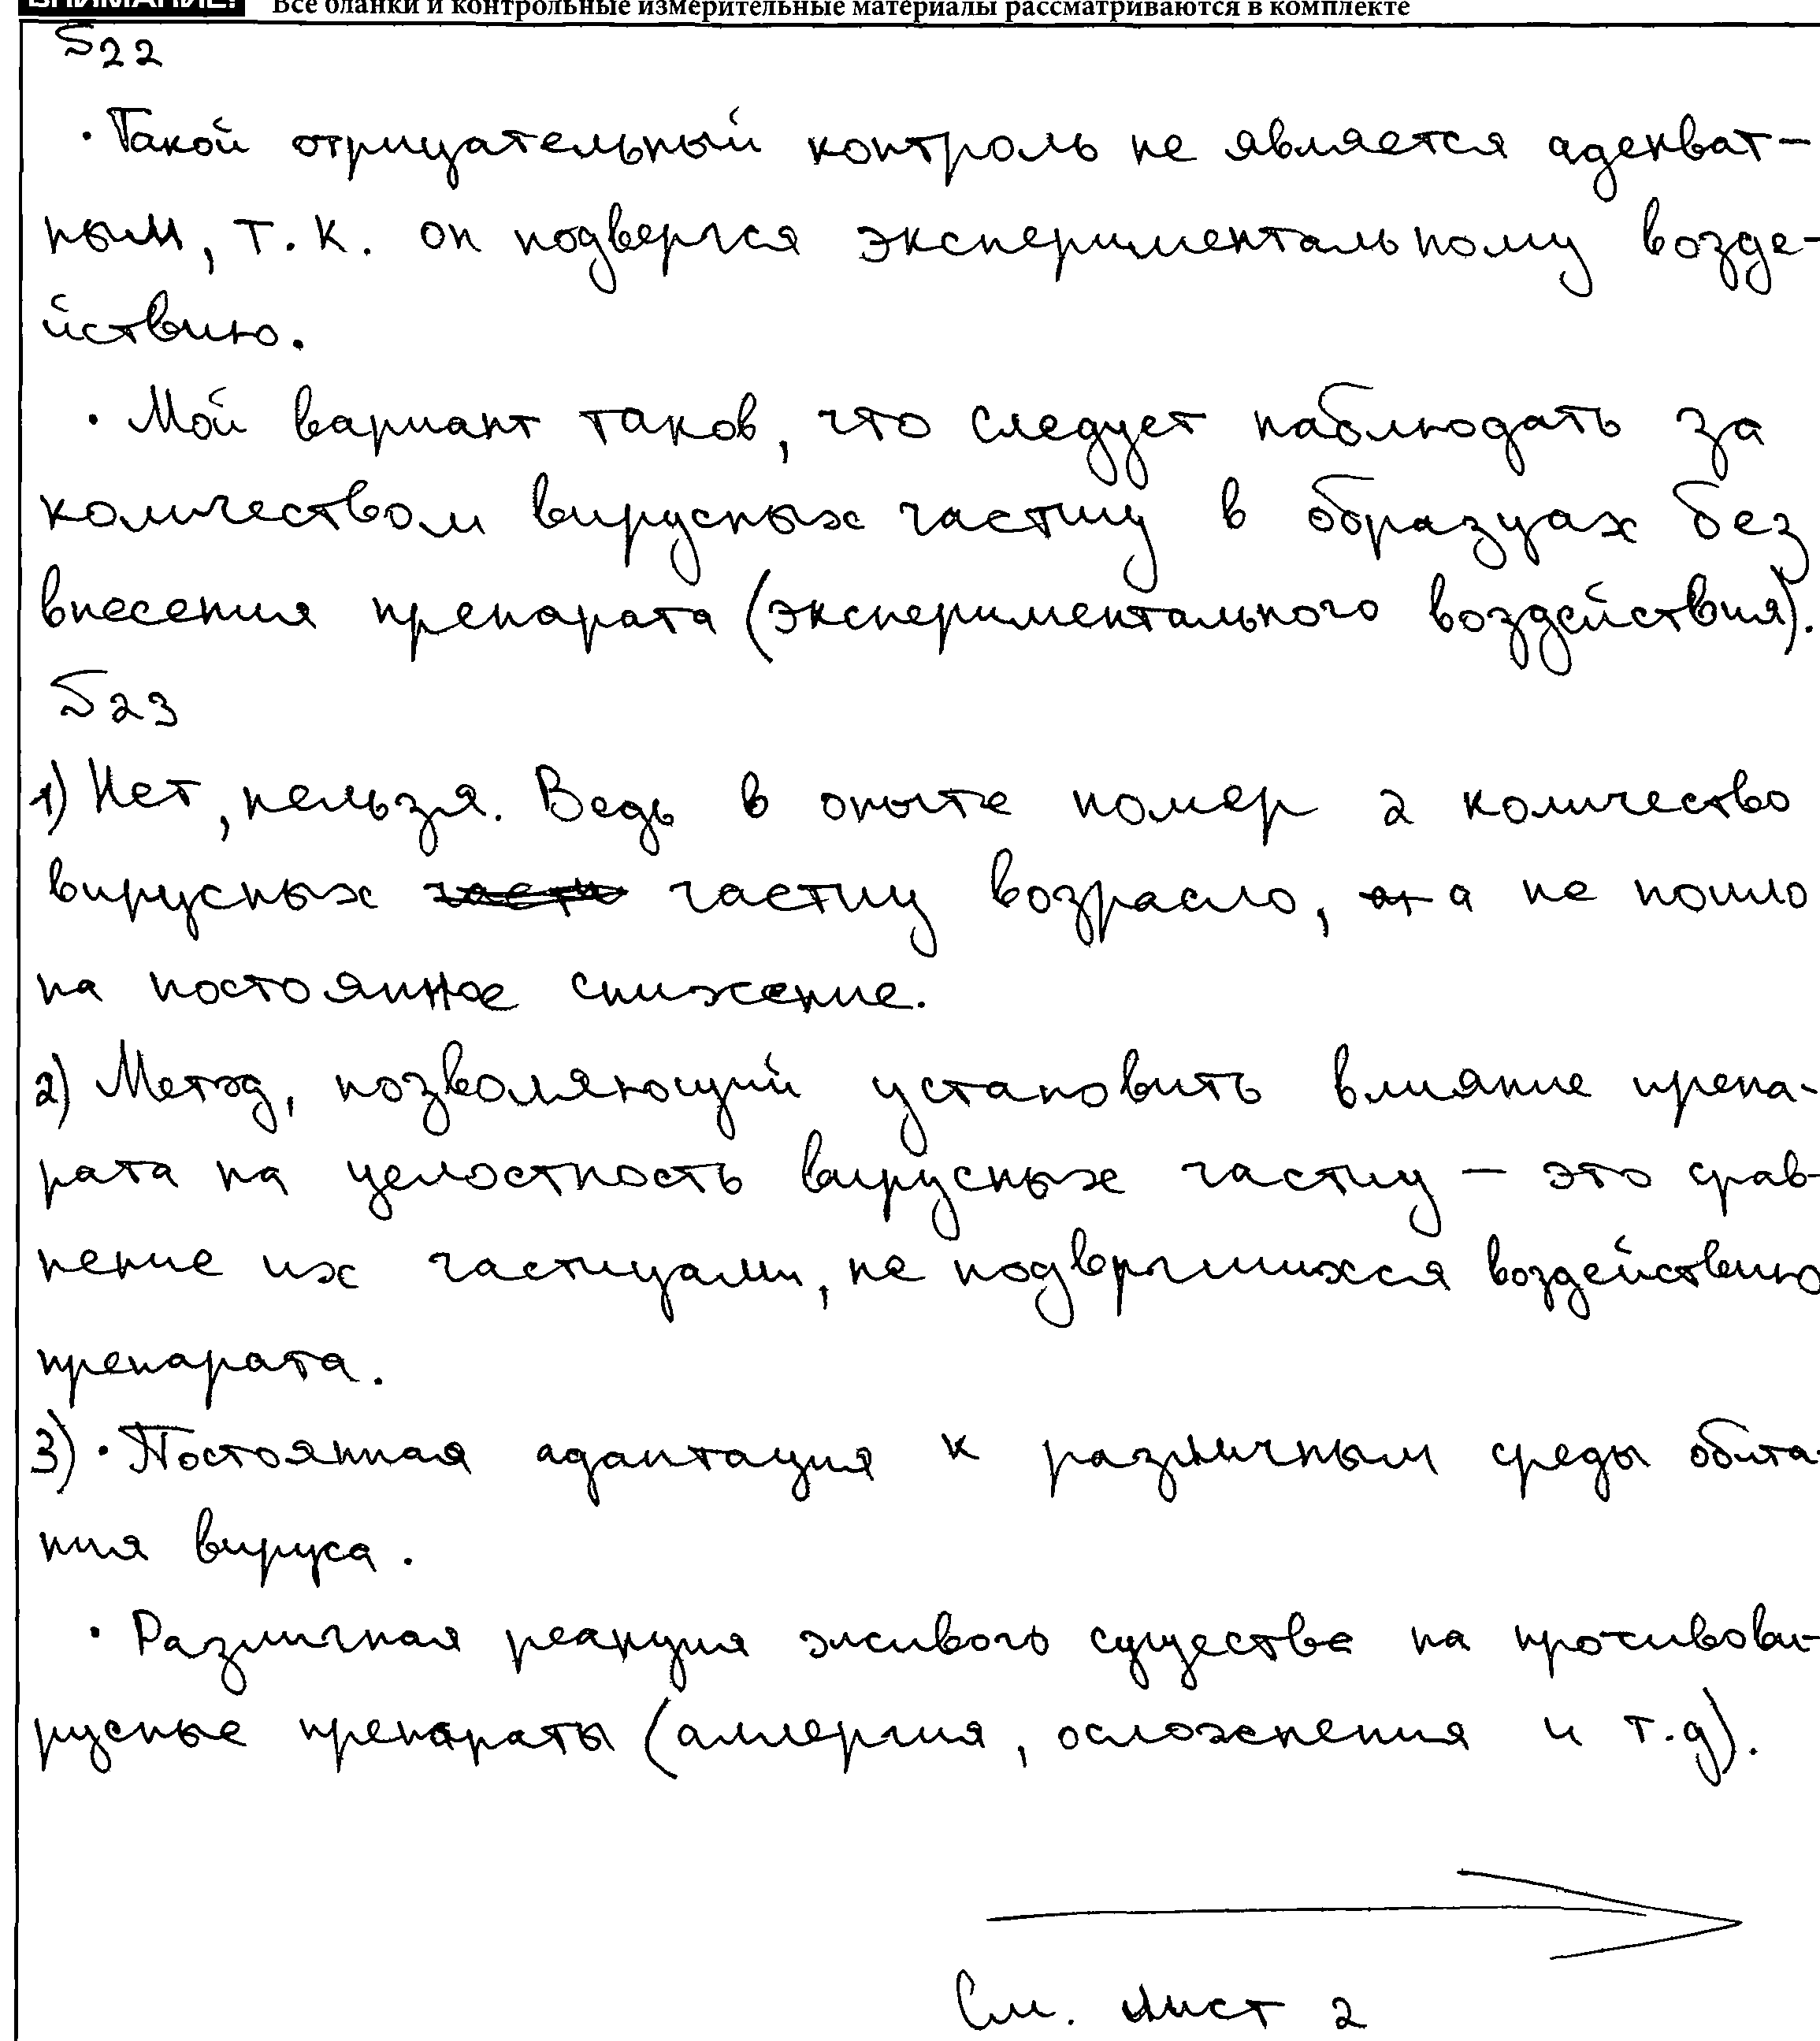 ВНИМАНИЕ! Все бланки и контрольные измерительные материалы рассматриваются в комплекте
S22
· Такой отрицательный контроль не является адекват-
ным, т.к. он подвергся экспериментальному возде-
йствию.
· Мой вариант таков, что следует наблюдать за
количеством вирусных частиц в образцах без
внесения препарата (экспериментального воздействия).
S23
1) Нет, нельзя. Ведь в опыте номер 2 количество
вирусных частиц возрасло, а не пошло
на постоянное снижение.
2) Метод, позволяющий установить влияние препа-
рата на целостность вирусных частиц – это срав-
нение их частицами, не подвергшихся воздействию
препарата.
3) · Постоянная адаптация к различным среды обита-
ния вируса.
· Различная реакция живого существа на противови-
русные препараты (аллергия, осложнения и т.д).
См. лист 2